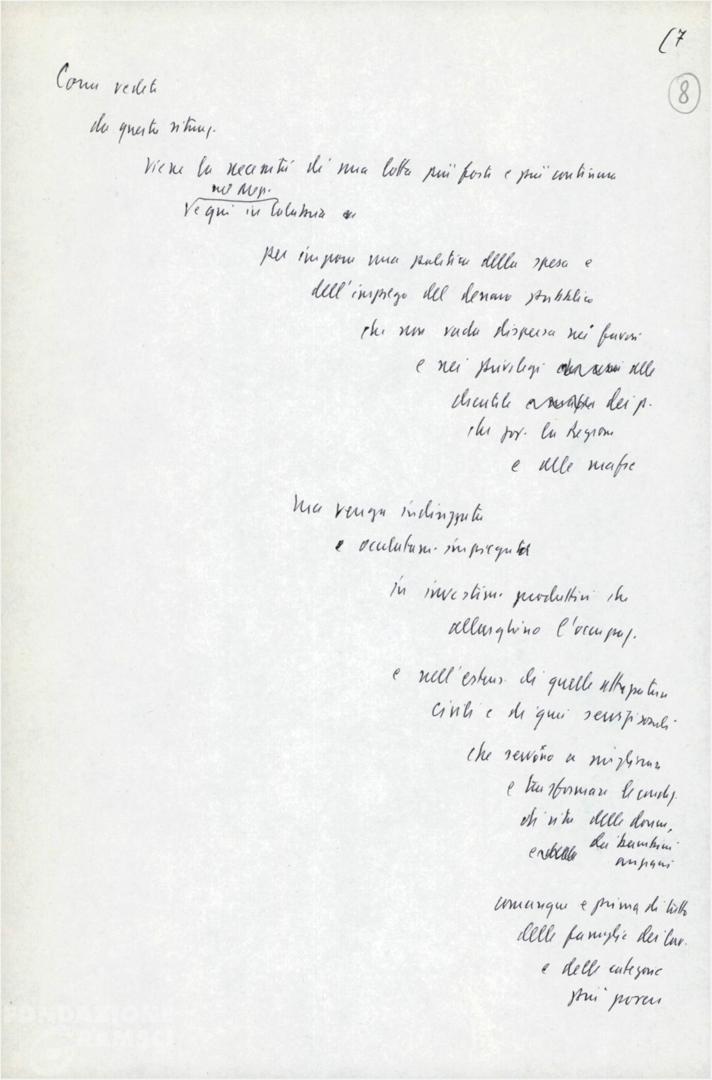 17
8
Come vedete
da questa situaz.
viene la necessità di una lotta più forte e più continua
nel Mezz.
e qui in Calabria
per imporre una politica della spesa e
dell'impiego del denaro pubblico
che non vada dispersa nei favori
e nei privilegi delle
clientele dei p.
che gov. la Regione
e delle mafie
ma venga indirizzata
e oculatam. impiegata
in investim. produttivi che
allarghino l'occupaz.
e nell'estens. di quelle attrezzature
civili e di quei servizi sociali
che servono a migliorare
e trasformare le condiz.
di vita delle donne,
dei bambini
e anziani
comunque e prima di tutto
delle famiglie dei lav.
e delle categorie
più povere
FONDAZIONE
GRAMSCI